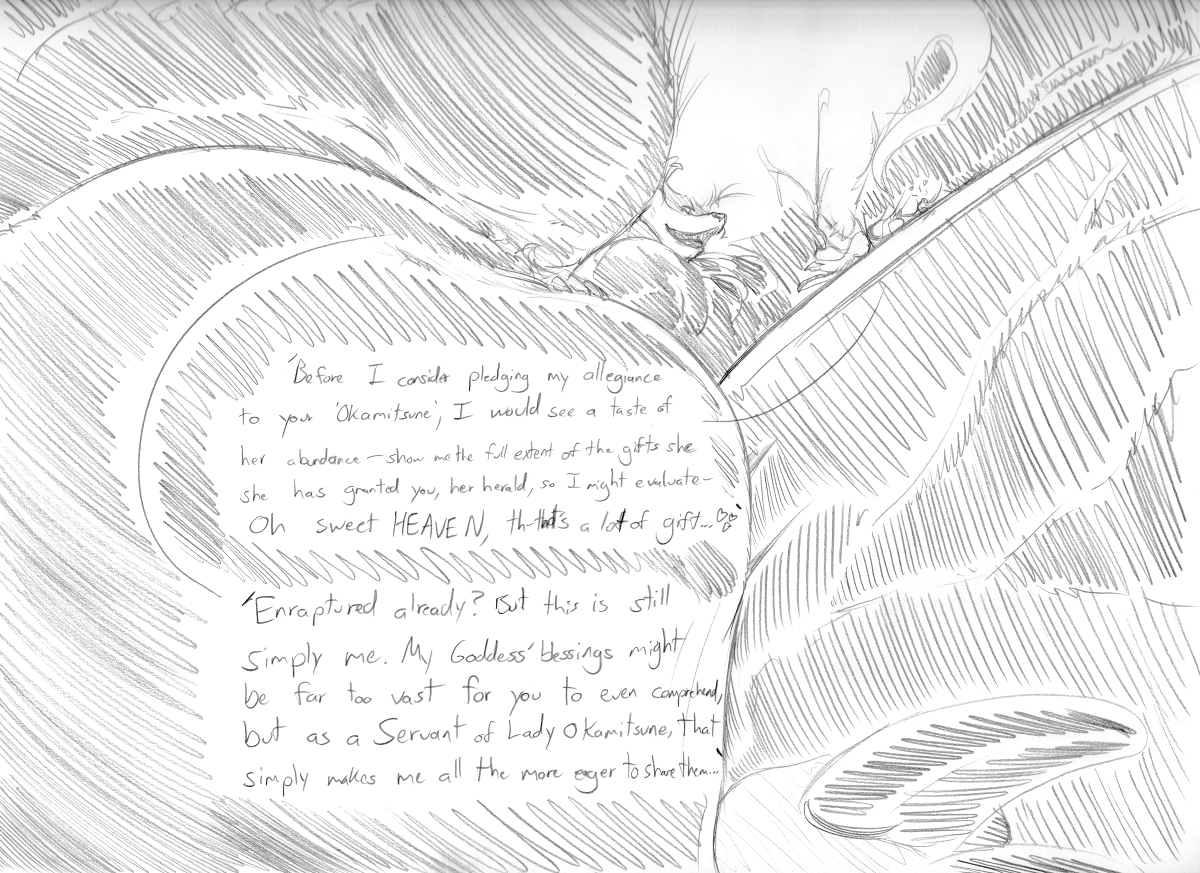 'Before I consider pledging my allegiance
to your 'Okamitsune', I would see a taste of
her abundance — show me the full extent of the gifts she
she has granted you, her herald, so I might evaluate–
Oh sweet HEAVEN, th-that's a lot of gift...♡♡♡'
'Enraptured already? But this is still
simply me. My Goddess' blessings might
be far too vast for you to even comprehend,
but as a Servant of Lady Okamitsune, that
simply makes me all the more eager to share them...'